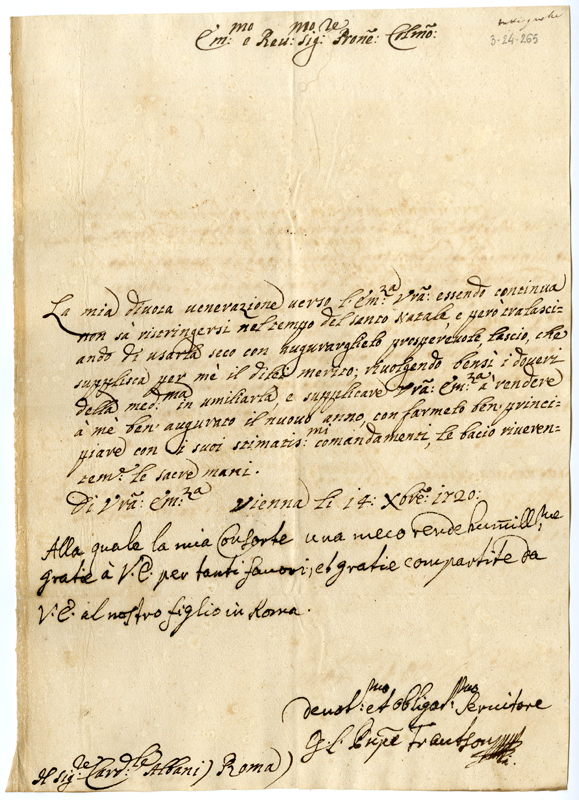 3-24-265
Em:mo e Reu:mo Sig:re Prone: Colmo:
La mia diuota uenerazione uerso l'Em:za Vra: essendo continua
non sà ristringersi nel tempo del santo Natale, e però tralasci-
ando di usarla seco con auguraglielo prosperevole, lascio, che
supplisca per mè il di lei merito; riuolgendo bensì i doueri
della med:ma in umiliarla, e supplicare Vra: Em:za à rendere
à mè ben augurato il nuouo anno, con farmelo ben princi-
piare con i suoi stimatis:mi comandamenti, le bacio riueren-
tem:e le sacre mani.
Di Vra: Em:za Vienna li 14: Xbre: 1720:
Alla quale la mia Consorte una meco rende humill:me
gratie à V.E. per tanti fauori, et gratie compartite da
V.E. al nostro figlio in Roma.
deuot:mo et obligat:mo Seruitore
G L Prnpe Trautson
Al Sig:re Card:le Albani) Roma)